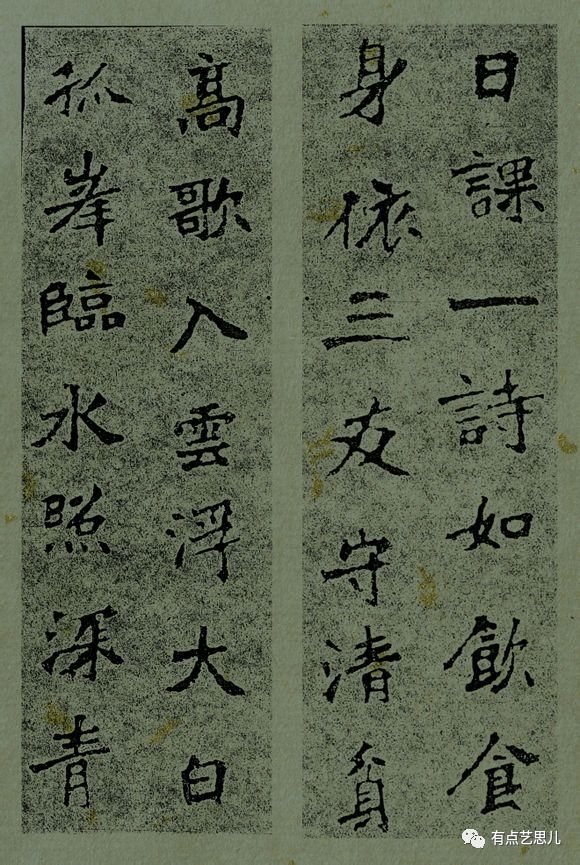 日課一詩如飲食
身依三友守清貧
高歌入雲浮大白
孤峯臨水照深青
有点艺思儿